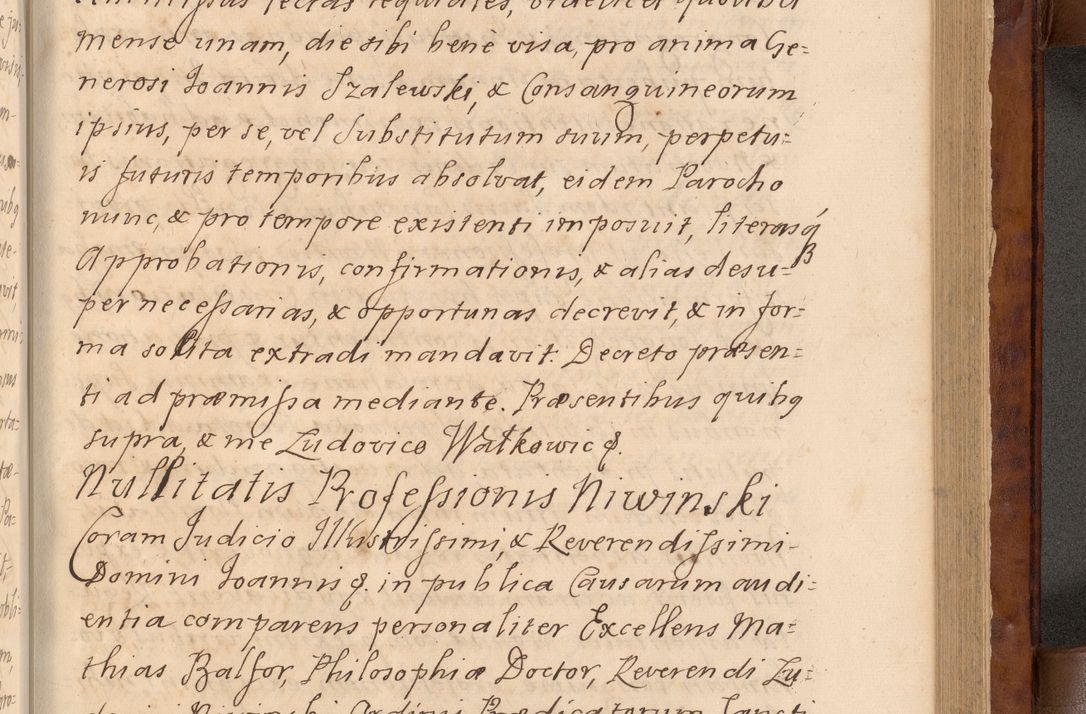 mense unam, die sibi benè visa, pro anima Ge=
nerosi Joannis Szalewski, & Consanguineorum
ipsius, per se, vel Substitutum suum, perpetu=
is futuris temporibus absolvat, eidem Parocho
nunc, & pro tempore existenti imposuit, literasq́
Approbationis, confirmationis, & alias desu=
per necessarias, & opportunas decrevit, & in for=
ma solita extradi mandavit. Decreto præsen=
ti ad præmissa mediante. Præsentibus quibq
supra, & me Ludovico Watkowic &.
Nullitatis Professionis Niwinski
Coram Judicio Illustrissimi, & Reverendissimi
Domini Joannis &. in publica Causarum audi=
entia comparens personaliter Excellens Ma=
thias Balsor, Philosophiæ Doctor, Reverendi Lu=
Niwinski Ordinis Prædicatorum Sancti